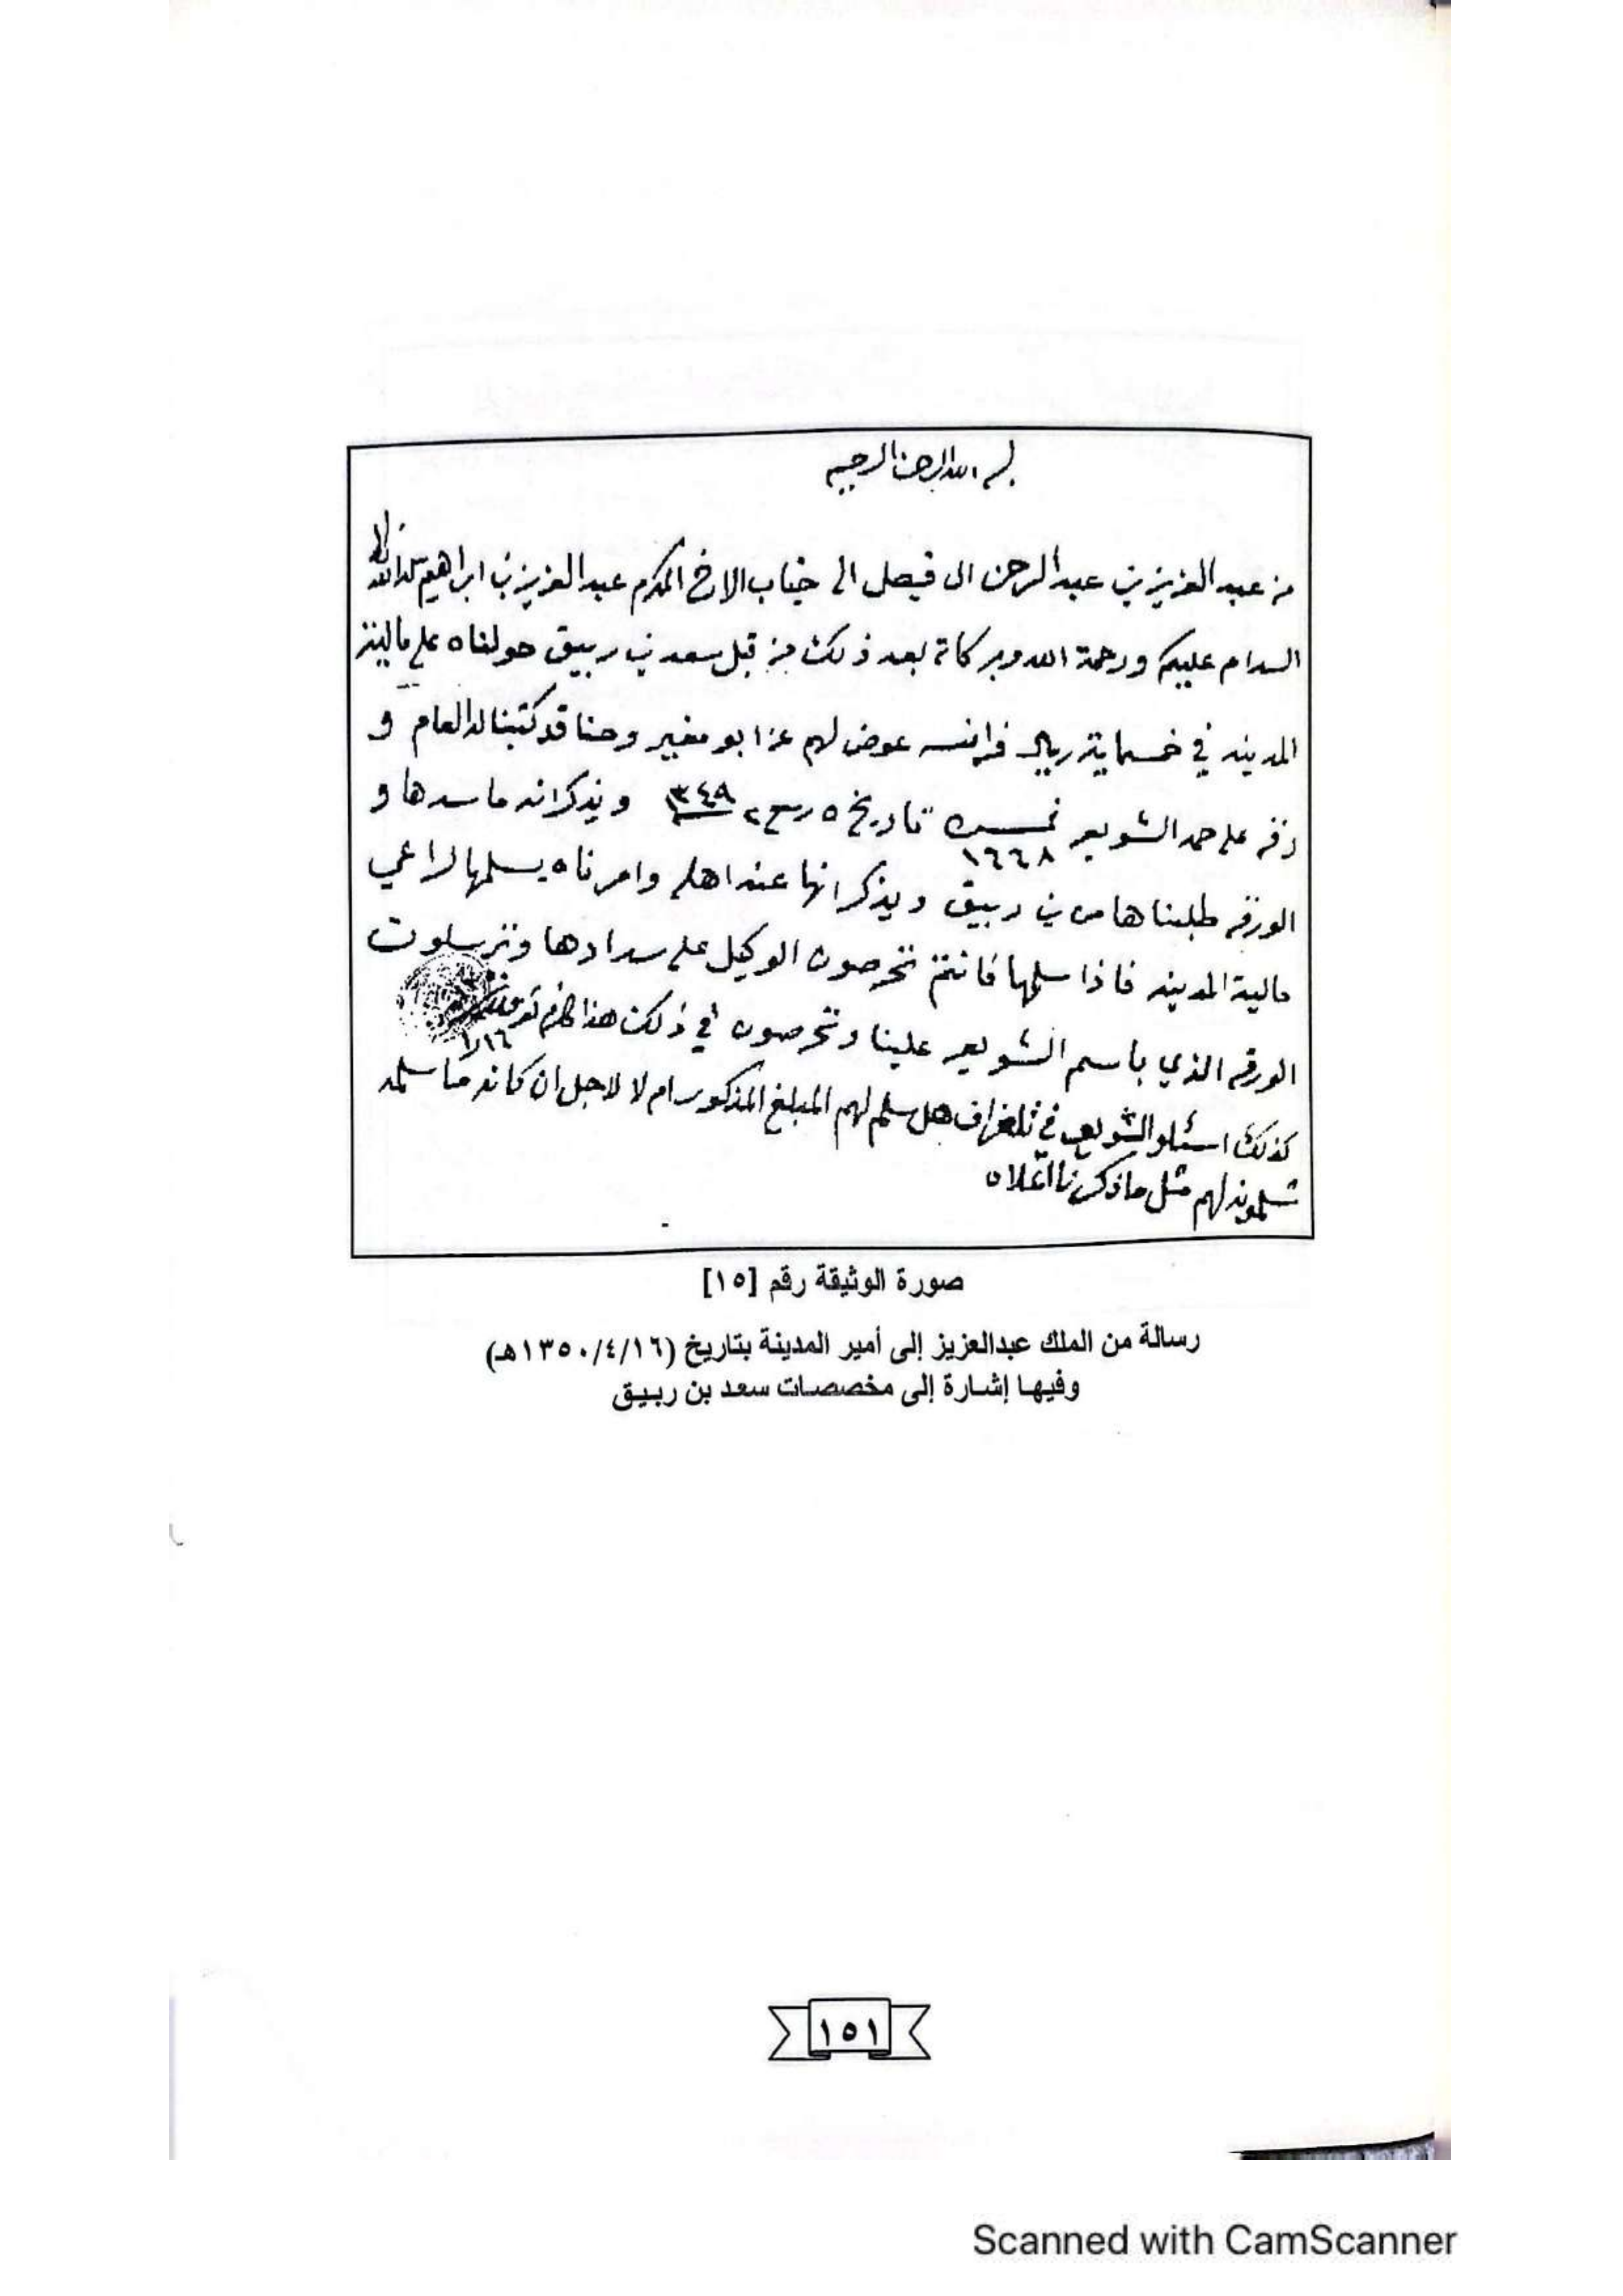 بسم الله الرحمن الرحيم
من عبد العزيز بن عبد الرحمن ال فيصل الى جناب الاخ المكرم عبد العزيز بن ابراهيم سلمه الله
السلام عليكم ورحمة الله وبركاته بعد ذلك من قبل سعد بن ربيق حولناه على مالية
المدينه في خمسماية ريال فرانسه عوض لهم عن ابو مغير وحنا قد كتبنا له العام و
رقه على حمد الشويعر نمره ١٦٦٨ تاريخ ٥ ربيع ٢ ١٣٤٩ ويذكر انه ما سدها و
الورقه طلبناها من بن ربيق ويذكر انها عند اهله وامرناه يسلمها لراعي
مالية المدينه فاذا سلمها فانتم تحرصون الوكيل على سدادها وترسلون
الورقه الذي باسم الشويعر علينا وتحرصون في ذلك هذا مالزم تعريفه
١٦
كذلك اسئلو الشويعر في تلغراف هل سلم لهم المبلغ المذكور ام لا لاجل ان كانه ما سلمه
تسلمونه لهم مثل ما ذكرنا اعلاه
صورة الوثيقة رقم [١٥]
رسالة من الملك عبدالعزيز إلى أمير المدينة بتاريخ (١٣٥٠/٤/١٦هـ)
وفيها إشارة إلى مخصصات سعد بن ربيق
١٥١
Scanned with CamScanner